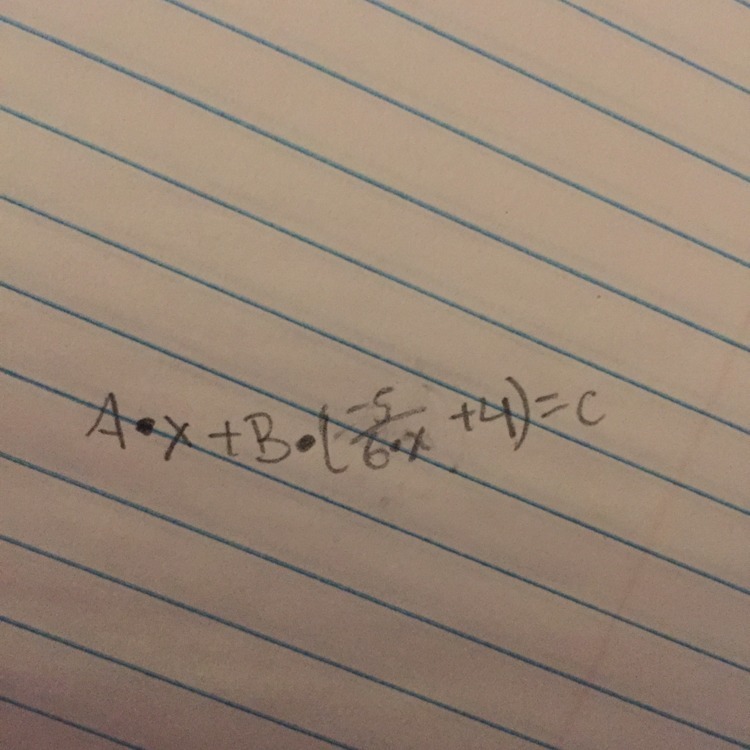 A•x+B•(-5/6•x +4)=C